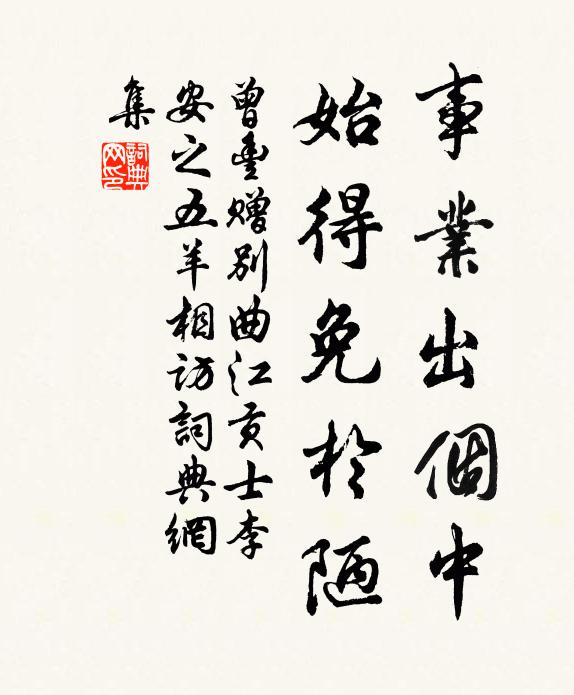 事業出個中
始得免於陋
曾豐贈別曲江貢士李
安之五羊相訪詞典網
集
詞典
网印